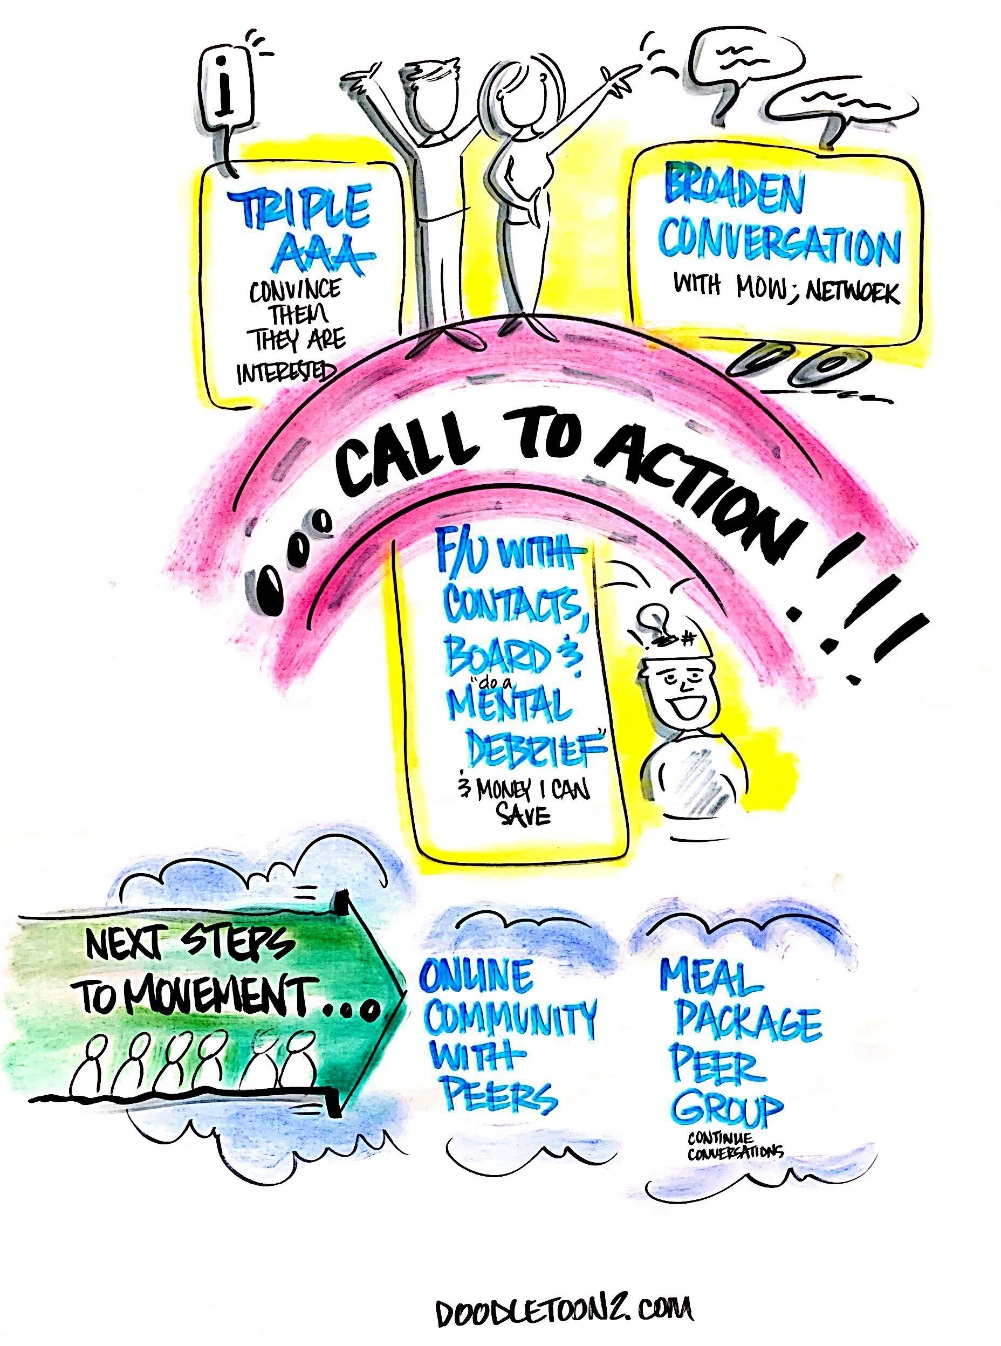 i
TRIPLE
AAA
CONVINCE
THEM
THEY ARE
INTERESTED
BROADEN
CONVERSATION
WITH MOW; NETWORK
... CALL TO ACTION!!!
F/U WITH
CONTACTS,
BOARD &
"do a
MENTAL
DEBRIEF"
& MONEY I CAN
SAVE
? #
NEXT STEPS
TO MOVEMENT...
ONLINE
COMMUNITY
WITH
PEERS
MEAL
PACKAGE
PEER
GROUP
CONTINUE
CONVERSATIONS
DOODLETOONZ.COM